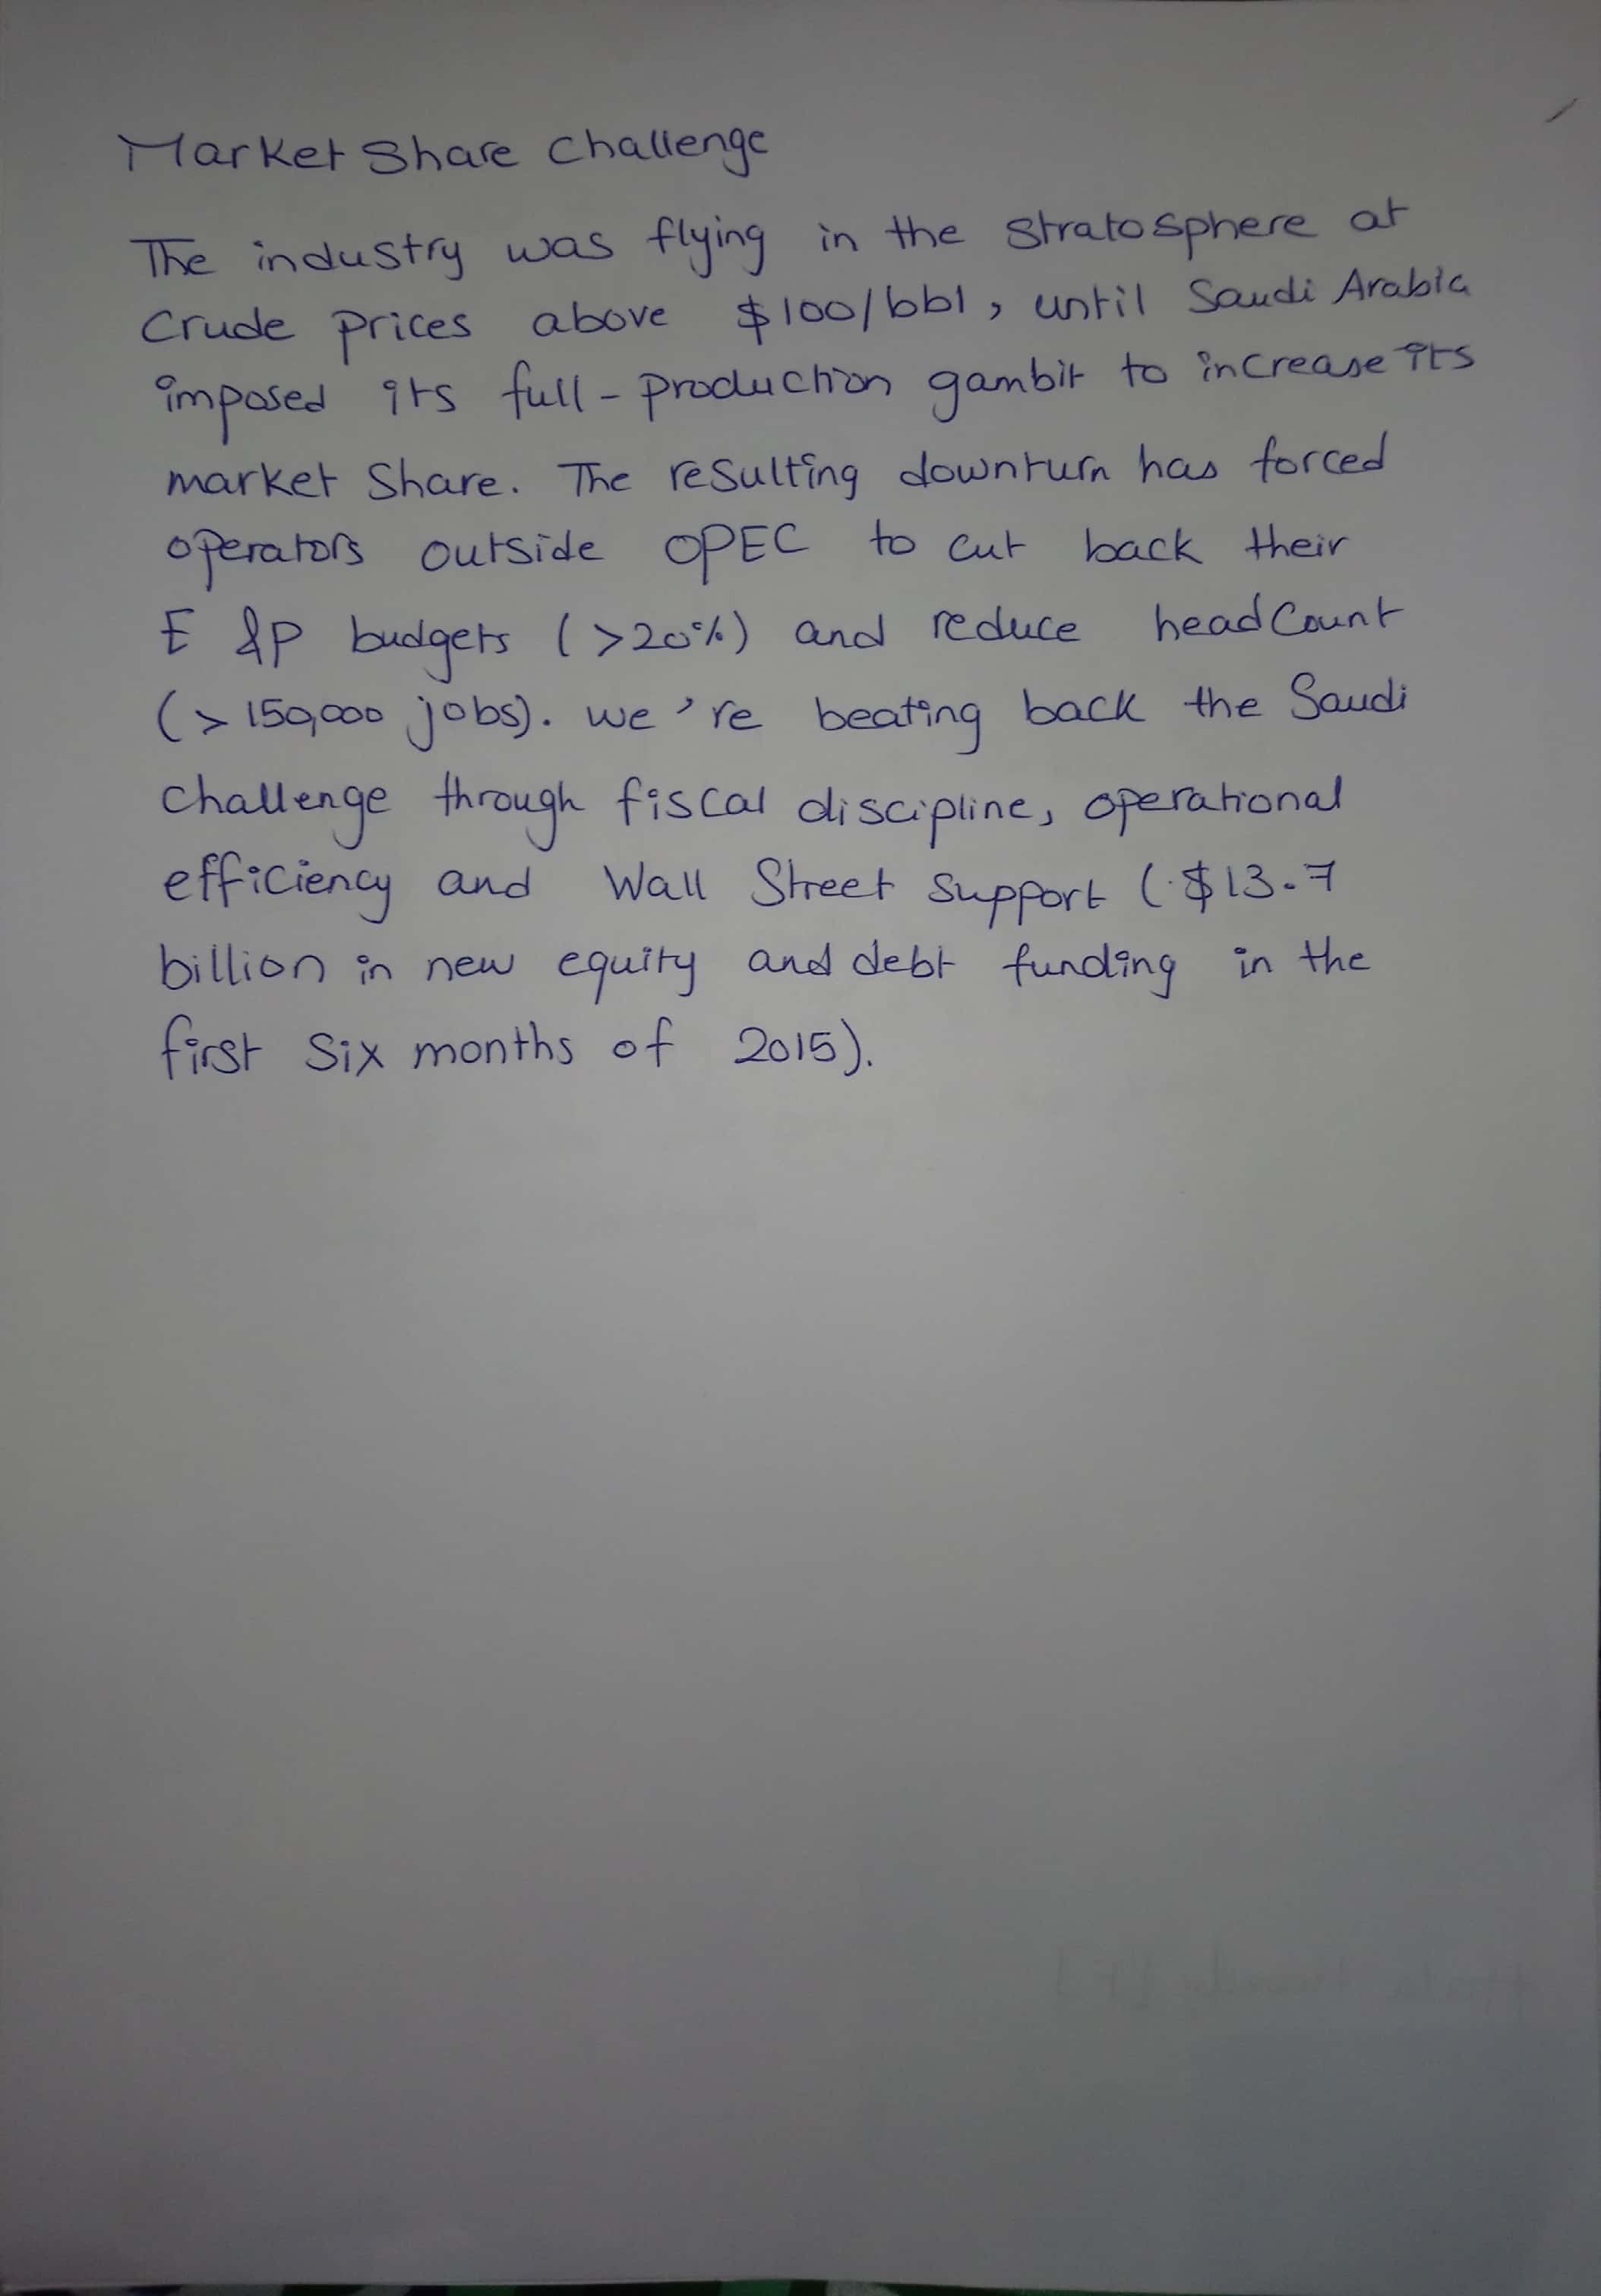 Market Share Challenge
The industry was flying in the stratosphere at
crude prices above $100/bbl, until Saudi Arabia
imposed its full-production gambit to increase its
market share. The resulting downturn has forced
operators outside OPEC to cut back their
E &P budgets (>20%) and reduce headcount
(>150,000 jobs). we're beating back the Saudi
challenge through fiscal discipline, operational
efficiency and Wall Street support ($13.7
billion in new equity and debt funding in the
first six months of 2015).